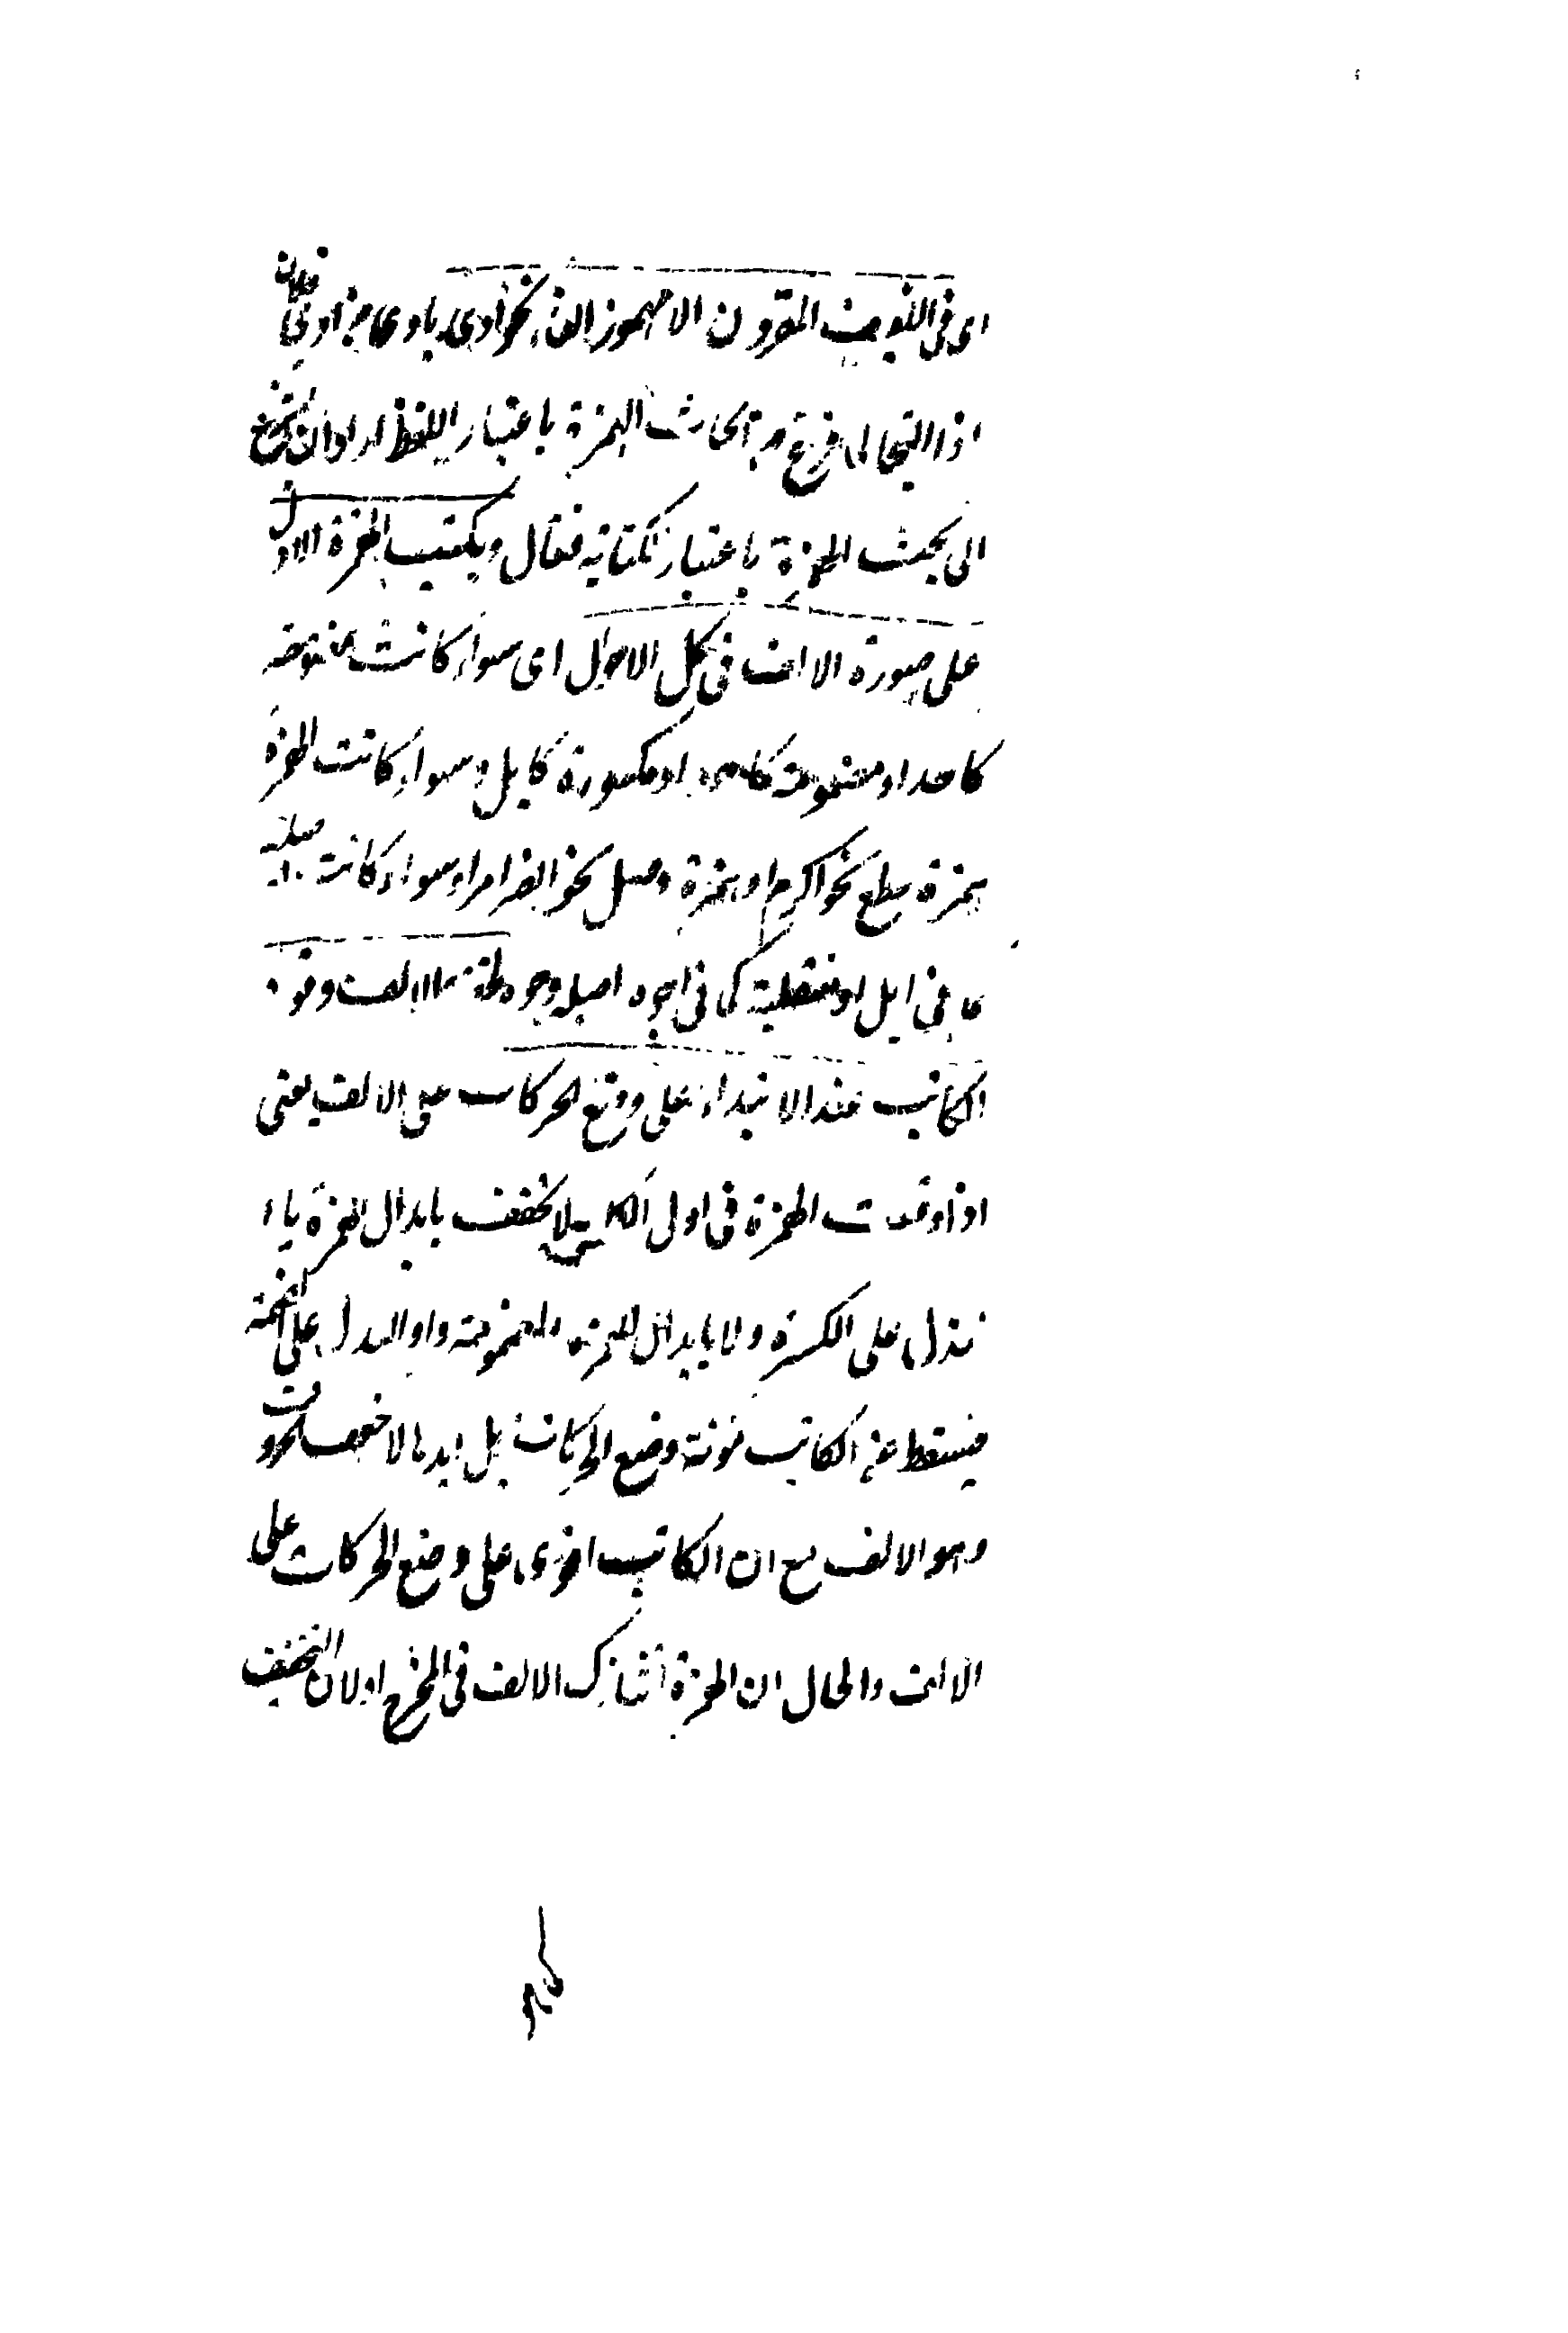 اى فى اللفيف المقرون الا مهموز الفاء نحو اوى ياوى من اوى فلان
اذا التجا لما فرغ من ابحاث الهمزة باعتبار اللفظ اراد ان يشرع
الى بحث الهمزة باعتبار الكتابة فقال ويكتب الهمزة الاول
على صورة الالف فى كل الاحوال اى سواء كانت مفتوحة
كاحد او مضمومة كاحد او مكسورة كابل وسواء كانت الهمزة
همزة قطع نحو اكرم او همزة وصل نحو انصر امرا وسواء كانت اصلية
كما فى ابل او منقلبة كما فى اجوه اصله وجوه لخفة الالف وقوة
الكاتب عند الابتداء على وضع الحركات على الالف يعنى
اذا وقعت الهمزة فى اول الكلمة لا تخفف بابدال الهمزة ياء
تدل على الكسرة ولا بابدال الهمزة المضمومة واوا لتدل على الضمة
فيسقط عن الكاتب مؤنة وضع الحركات بل ابدلها لاخف الحروف
وهو الالف مع ان الكاتب اقوى على وضع الحركات على
الالف والحال ان الهمزة تشارك الالف فى المخرج اولا التخفيف